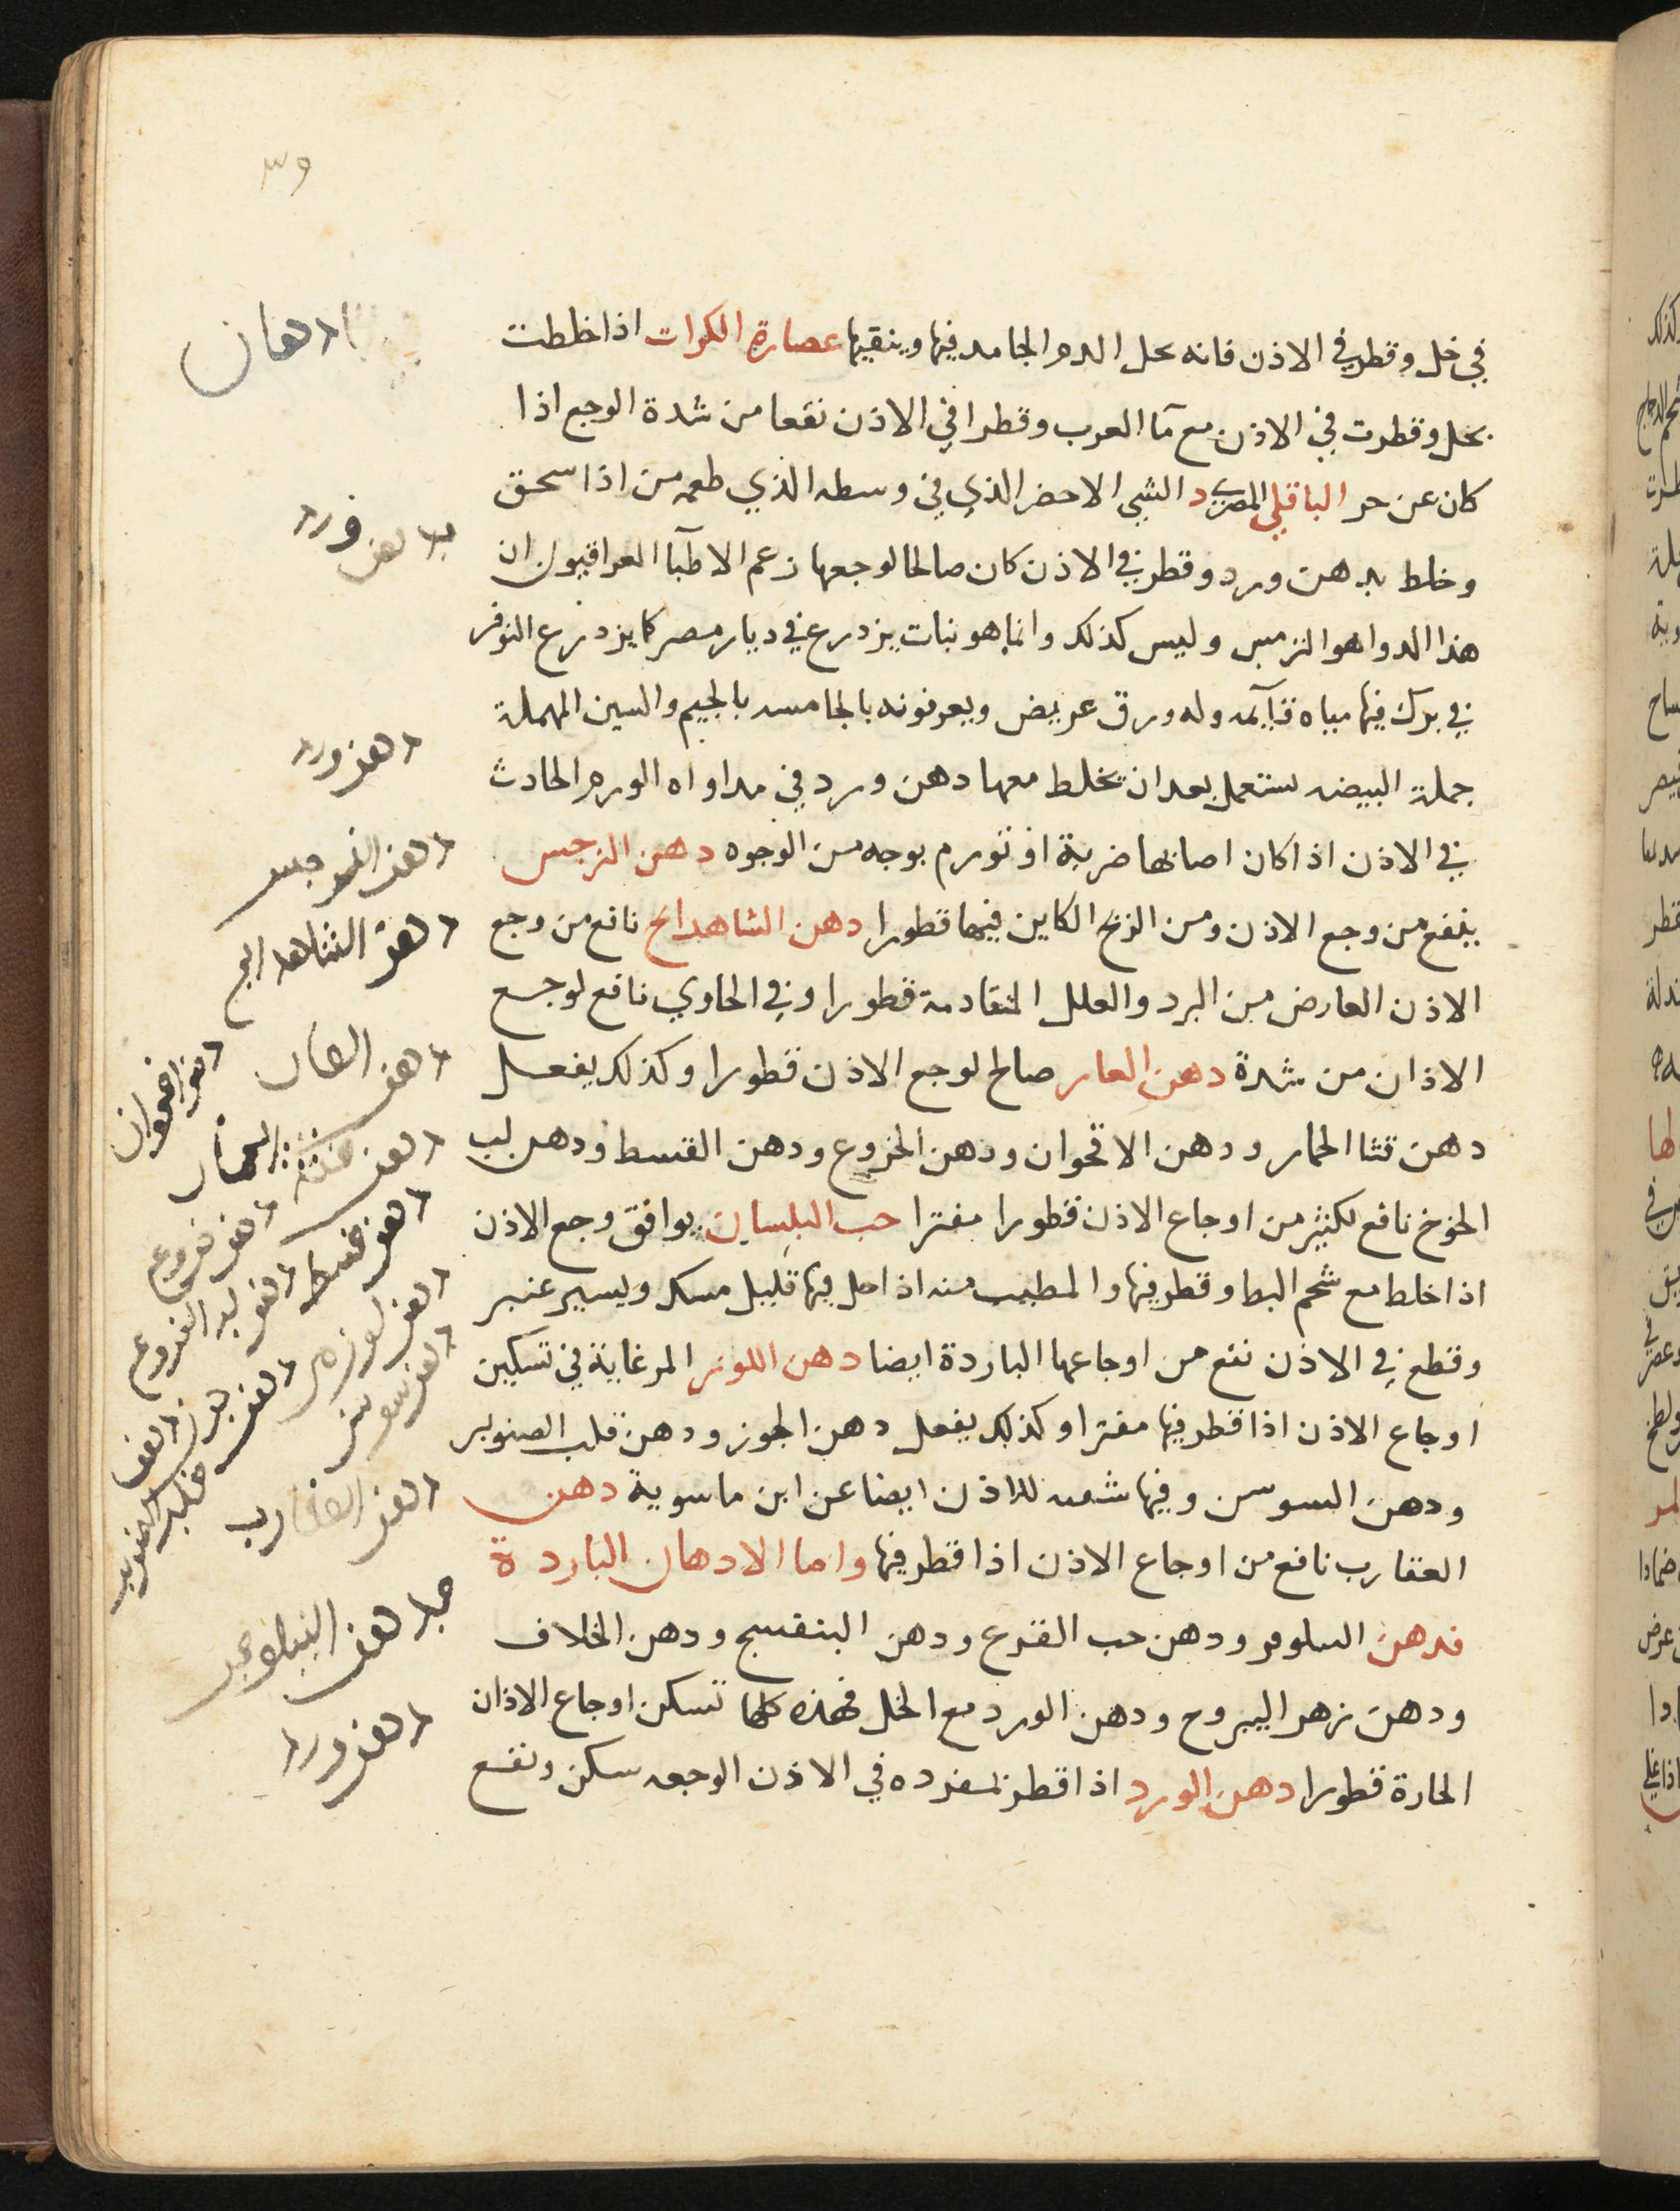 في خل وقطر في الاذن فانه يحل الدم الجامد فيها وينقيها عصارة الكراث اذا خلطت
بخل وقطرت في الاذن مع مآ وقطرا في الاذن نفعا من شدة الوجع اذا
كان عن حر الباقلي المصري الشي الاخضر الذي في وسطه الذي طعمه من اذا سحق
وخلط بدهن ورد وقطر في الاذن كان صالحا لوجعها زعم الاطبآ العراقيون ان
هذا الدوا هو الترمس وليس كذلك وانما هو نبات يزدرع في ديار مصر كما يزدرع النوفر
في برك فيها مياه قآيمه وله ورق عريض ويعرفونه بالجامسه بالجيم والسين المهملة
جملة البيضه يستعمل بعد ان تخلط معها دهن ورد في مداواه الورم الحادث
في الاذن اذا كان اصابها ضربة او تورم بوجه من الوجوه دهن النرجس
ينفع من وجع الاذن ومن الريح الكاين فيها قطورا دهن الشاهدانج نافع من وجع
الاذن العارض من البرد والعلل المتقادمة قطورا وفي الحاوي نافع لوجع
الاذان من شدة دهن الغار صالح لوجع الاذن قطورا وكذلك يفعل
دهن قثا الحمار ودهن الاقحوان ودهن الخروع ودهن القسط ودهن لب
الخوخ نافع لكثير من اوجاع الاذن قطورا مفترا حب البلسان يوافق وجع الاذن
اذا خلط مع شحم البط وقطر فيها والمطيب منه اذا حل فيها قليل مسك ويسير عنبر
وقطع في الاذن نفع من اوجاعها الباردة ايضا دهن اللوز المر غاية في تسكين
اوجاع الاذن اذا قطر فيها مفترا وكذلك يفعل دهن الجوز ودهن قلب الصنوبر
ودهن السوسن وفيها للاذن ايضا عن ابن ماسوية دهن
العقارب نافع من اوجاع الاذن اذا قطر فيها واما الادهان الباردة
فدهن النيلوفر ودهن حب القرع ودهن البنفسج ودهن الخلاف
ودهن زهر اليبروح ودهن الورد مع الخل فهذه كلها تسكن اوجاع الاذان
الحارة قطورا دهن الورد اذا قطر بمفرده في الاذن الوجعه سكن ونفع
ادهان
دهن ورد
دهن النرجس
دهن الشاهدانج
دهن الغار
دهن اقحوان
دهن خروع
دهن قسط
دهن سوسن
دهن العقارب
دهن النيلوفر
دهن ورد